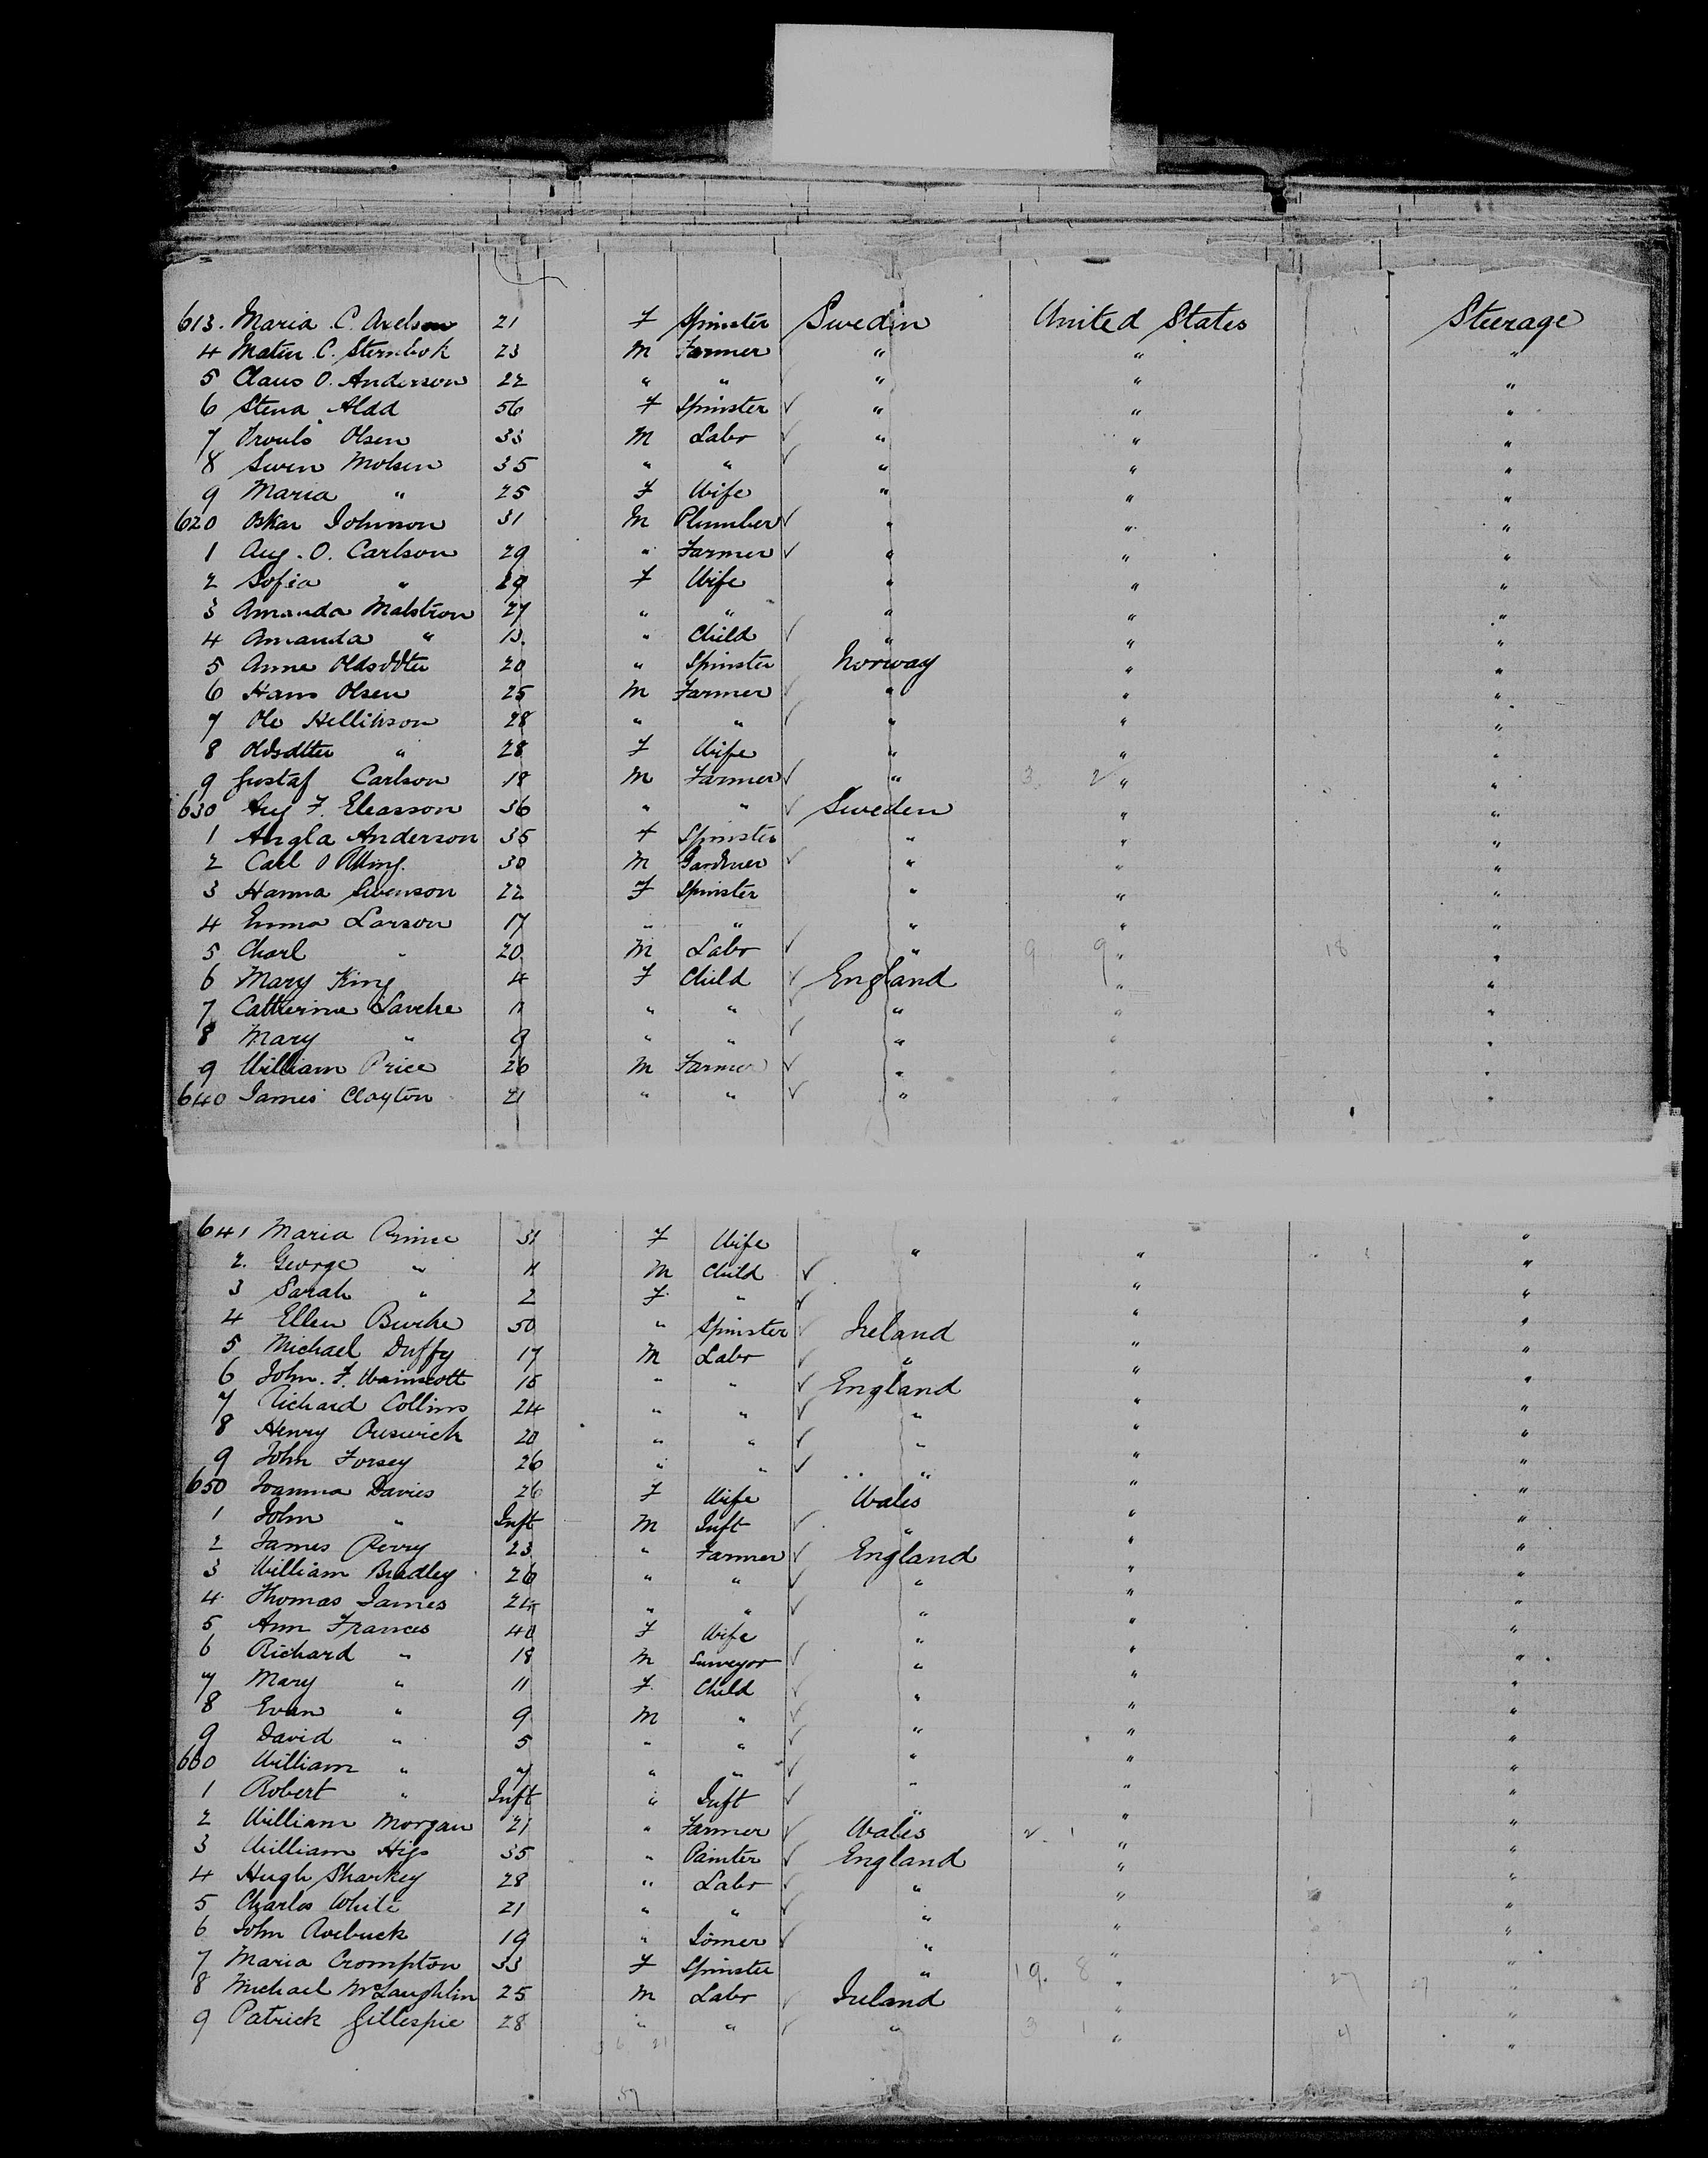 613. Maria C. Axelson 21 F Spinster Sweden United States Steerage
4 Matin C. Sternbok 23 M Farmer " " "
5 Claus O. Anderson 22 " " " " "
6 Stena Aldd 56 F Spinster ✓ " " "
7 Olsen 33 M Labr ✓ " " "
8 Swen Molsen 35 " " ✓ " " "
9 Maria " 25 F Wife " " "
620 Oskar Johnson 31 M Plumber ✓ " " "
1 Aug. O. Carlson 29 " Farmer ✓ " " "
2 Sofia " 29 F Wife " " "
3 Amanda Malstron 27 " " " " "
4 Amanda " " Child ✓ " " "
5 Anne Oldsdtter 20 " Spinster Norway " "
6 Hans Olsen 25 M Farmer ✓ " " "
7 Ole Hellikson 28 " " ✓ " " "
8 Oldsdtter " 28 F Wife " " "
9 Gustaf Carlson 18 M Farmer ✓ " 3 2 " "
630 Aug F. Eleasson 36 " " ✓ Sweden " "
1 Angla Anderson 35 F Spinster " " "
2 Carl O 30 M Gardner ✓ " " "
3 Hanna Svenson 22 F Spinster " " "
4 Emma Larson 17 " " " " "
5 Charl " 20 M Labr ✓ " 9 9 " 18 "
6 Mary King 4 F Child ✓ England " "
7 Catherine 11 " " ✓ " " "
8 Mary " 9 " " ✓ " " "
9 William Price 26 M Farmer ✓ " " "
640 James Clayton 21 " " ✓ " " "
641 Maria Prince 31 F Wife " " "
2. George " 4 M Child ✓ "
3 Sarah " 2 F " ✓ " "
4 Ellen Burke 50 " Spinster ✓ Ireland " "
5 Michael Duffy 17 M Labr ✓ " " "
6 John. F. Wainscott 18 " " ✓ England " "
7 Richard Collins 24 " " ✓ " " "
8 Henry 20 " " ✓ " " "
9 John Forsey 26 " " ✓ " " "
650 Joanna Davies 26 F Wife Wales " "
1 John " Inft M Inft ✓ " " "
2 James Perry 23 " Farmer ✓ England " "
3 William Bradley 26 " " ✓ " " "
4 Thomas James 24 " " ✓ " " "
5 Ann Frances 40 F Wife " " "
6 Richard " 18 M Surveyor ✓ " " "
7 Mary " 11 F Child ✓ " " "
8 Evan " 9 M " ✓ " " "
9 David " 5 " " ✓ " " "
660 William " 7 " " ✓ " " "
1 Robert " Inft " Inft ✓ " " "
2 William Morgan 21 " Farmer ✓ Wales 2. 1 " "
3 William Higs 35 " Painter ✓ England " "
4 Hugh Sharkey 28 " Labr ✓ " " "
5 Charles White 21 " " ✓ " " "
6 John Roebuck 19 " ✓ " " "
7 Maria Crompton 33 F Spinster " 19. 8 " 27 27 "
8 Michael McLaughlin 25 M Labr ✓ Ireland " "
9 Patrick Gillespie 28 " " ✓ " 3 1 " 4 "
36 21
57